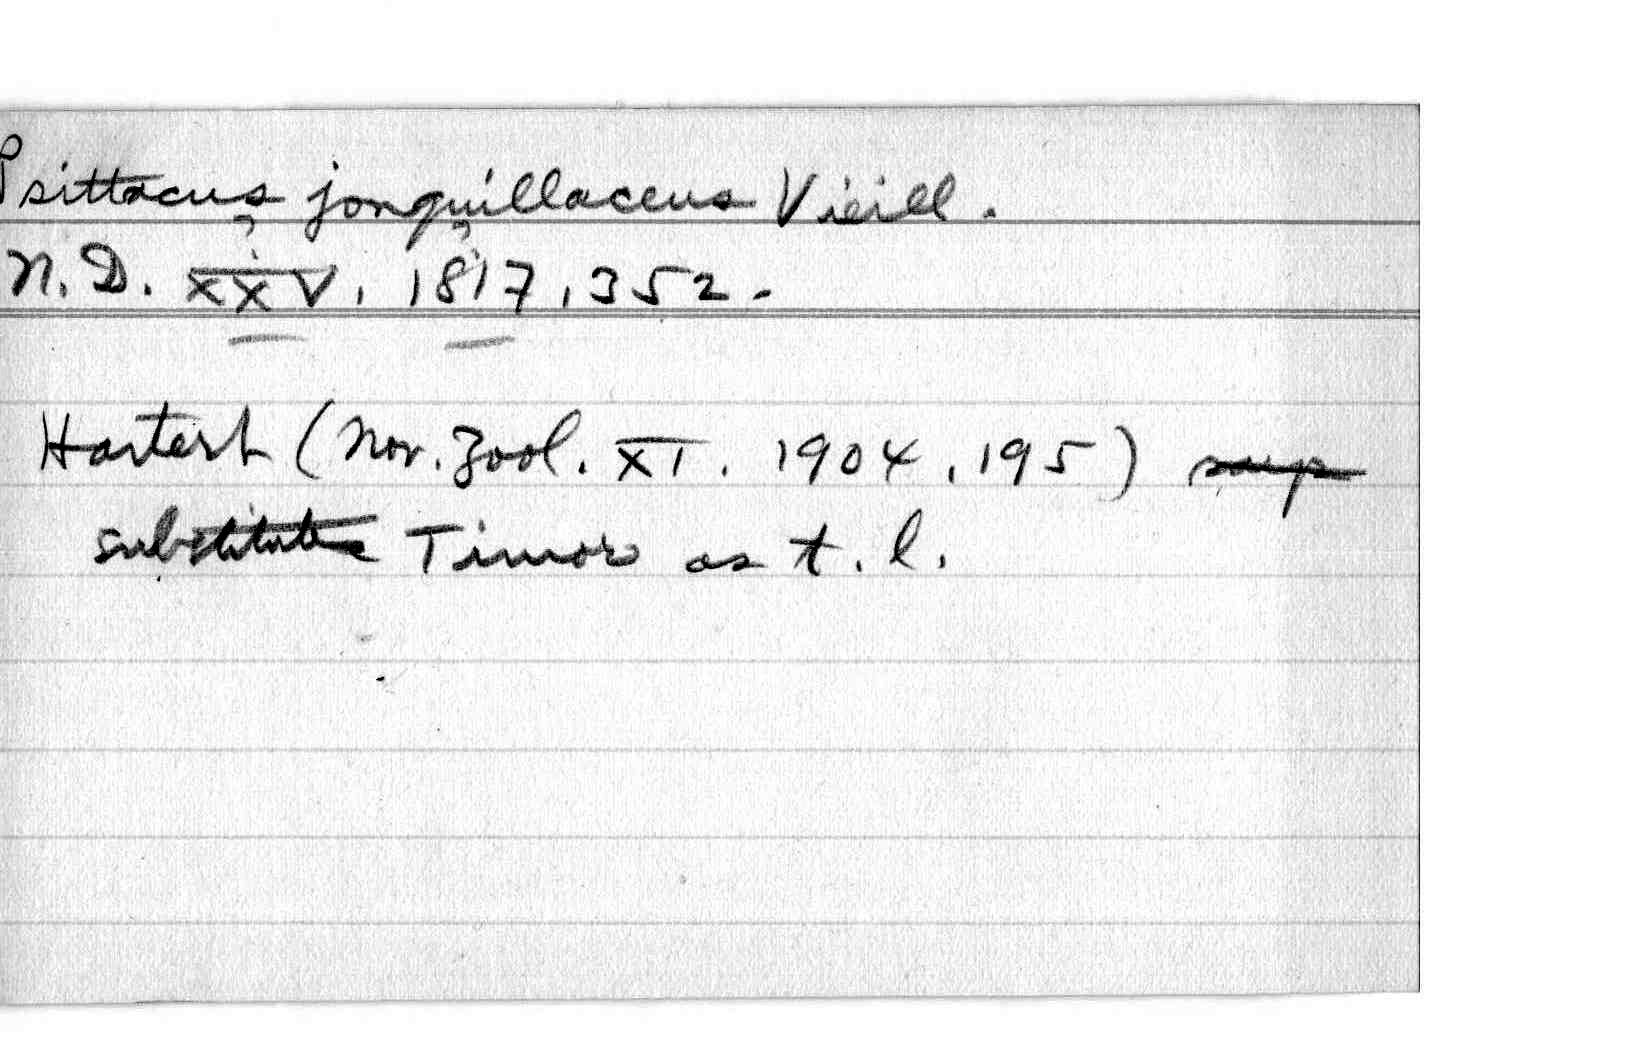 Psittacus jonquillaceus Vieill.
N. D. XXV, 1817, 352.
Hartert (Nov. Zool. XI. 1904, 195)
substitutes Timor as t. l.